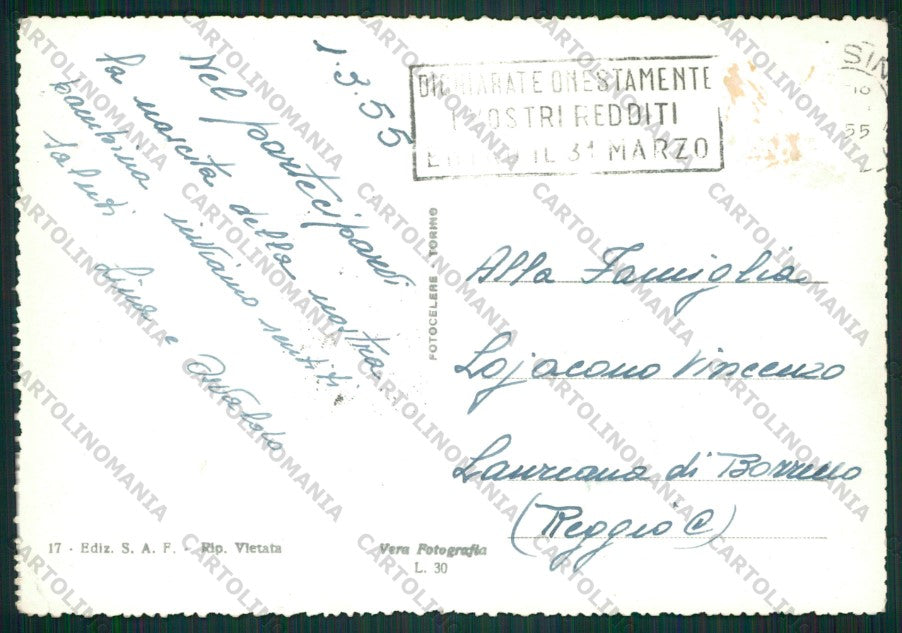 1.3.55
Nel parteciparvi
la nascita della nostra
bambina inviamo sentiti
saluti Lina e Osvaldo
DICHIARATE ONESTAMENTE
I VOSTRI REDDITI
ENTRO IL 31 MARZO
55
FOTOCELERE - TORINO
Alla Famiglia
Lojacono Vincenzo
Laureana di Borrello
(Reggio C)
17 - Ediz. S. A. F. - Rip. Vietata
Vera Fotografia
L. 30
CARTOLINOMANIA